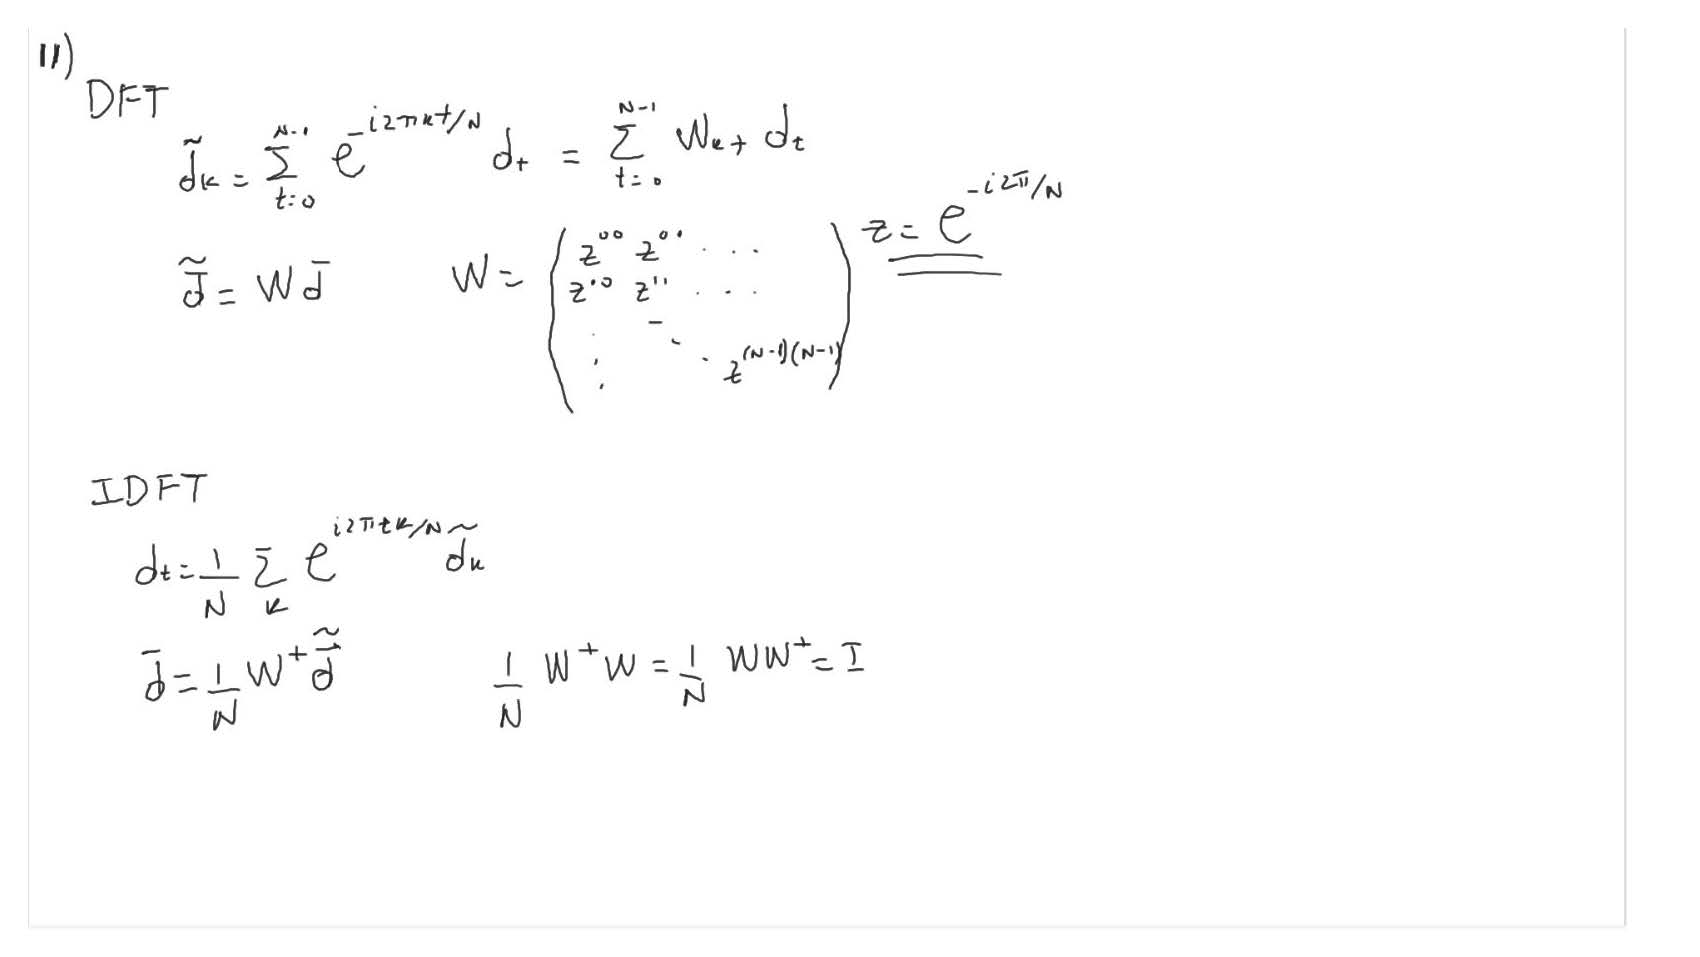 11)
DFT
d̃ₖ = Σ_{t=0}^{N-1} e^{-i2πkt/N} d_t = Σ_{t=0}^{N-1} W_{kt} d_t
z = e^{-i2π/N}
d̄̃ = W d̄    W = ( z^{00} z^{01} ...
z^{10} z^{11} ...
z^{(N-1)(N-1)} )
IDFT
d_t = 1/N Σ_k e^{i2πtk/N} d̃_k
d̄ = 1/N W^+ d̄̃    1/N W^+ W = 1/N W W^+ = I